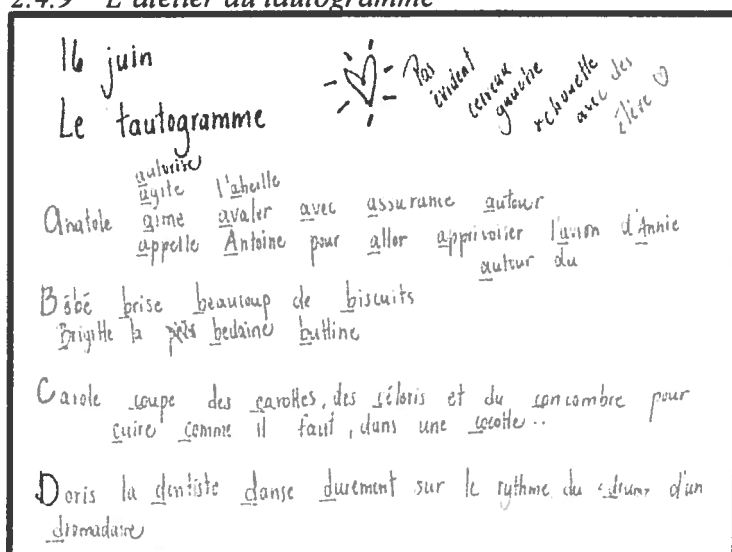 2.4.9 L'atelier du tautogramme
16 juin
Pas évident
cerveau gauche
+ chouette
avec des élève
Le tautogramme
autorise
agite l'abeille
Anatole aime avaler avec assurance autour
appelle Antoine pour aller apprivoiser l'avion d'Annie
autour du
Bébé brise beaucoup de biscuits
Brigitte la bedaine buttine
Carole coupe des carottes, des céleris et du concombre pour
cuire comme il faut, dans une cocotte..
Doris la dentiste danse durement sur le rythme du «drum» d'un
dromadaire